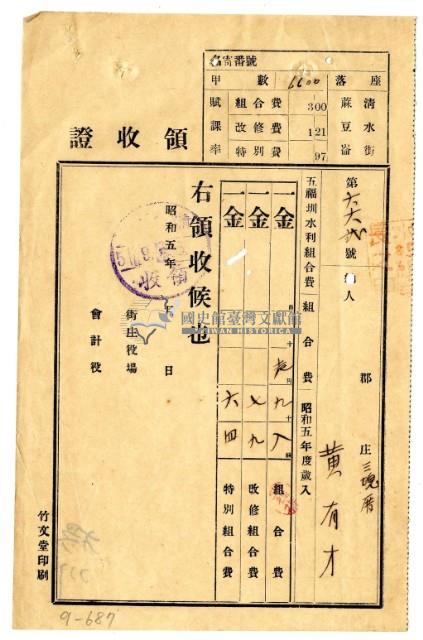 領收證
名寄番號
甲數 6600
賦課率
組合費 300
改修費 121
特別費 97
落座
清水街
蔴豆崙
第六六號
納人
郡
庄 三塊厝
黃有才
五福圳水利組合費 組合費 昭和五年度歲入
一金 九八 組合費
一金 七九 改修組合費
一金 六四 特別組合費
右領收候也
昭和五年 月 日
街庄役場
會計役
領收
竹文堂印刷
國史館臺灣文獻館
TAIWAN HISTORICA
9-687